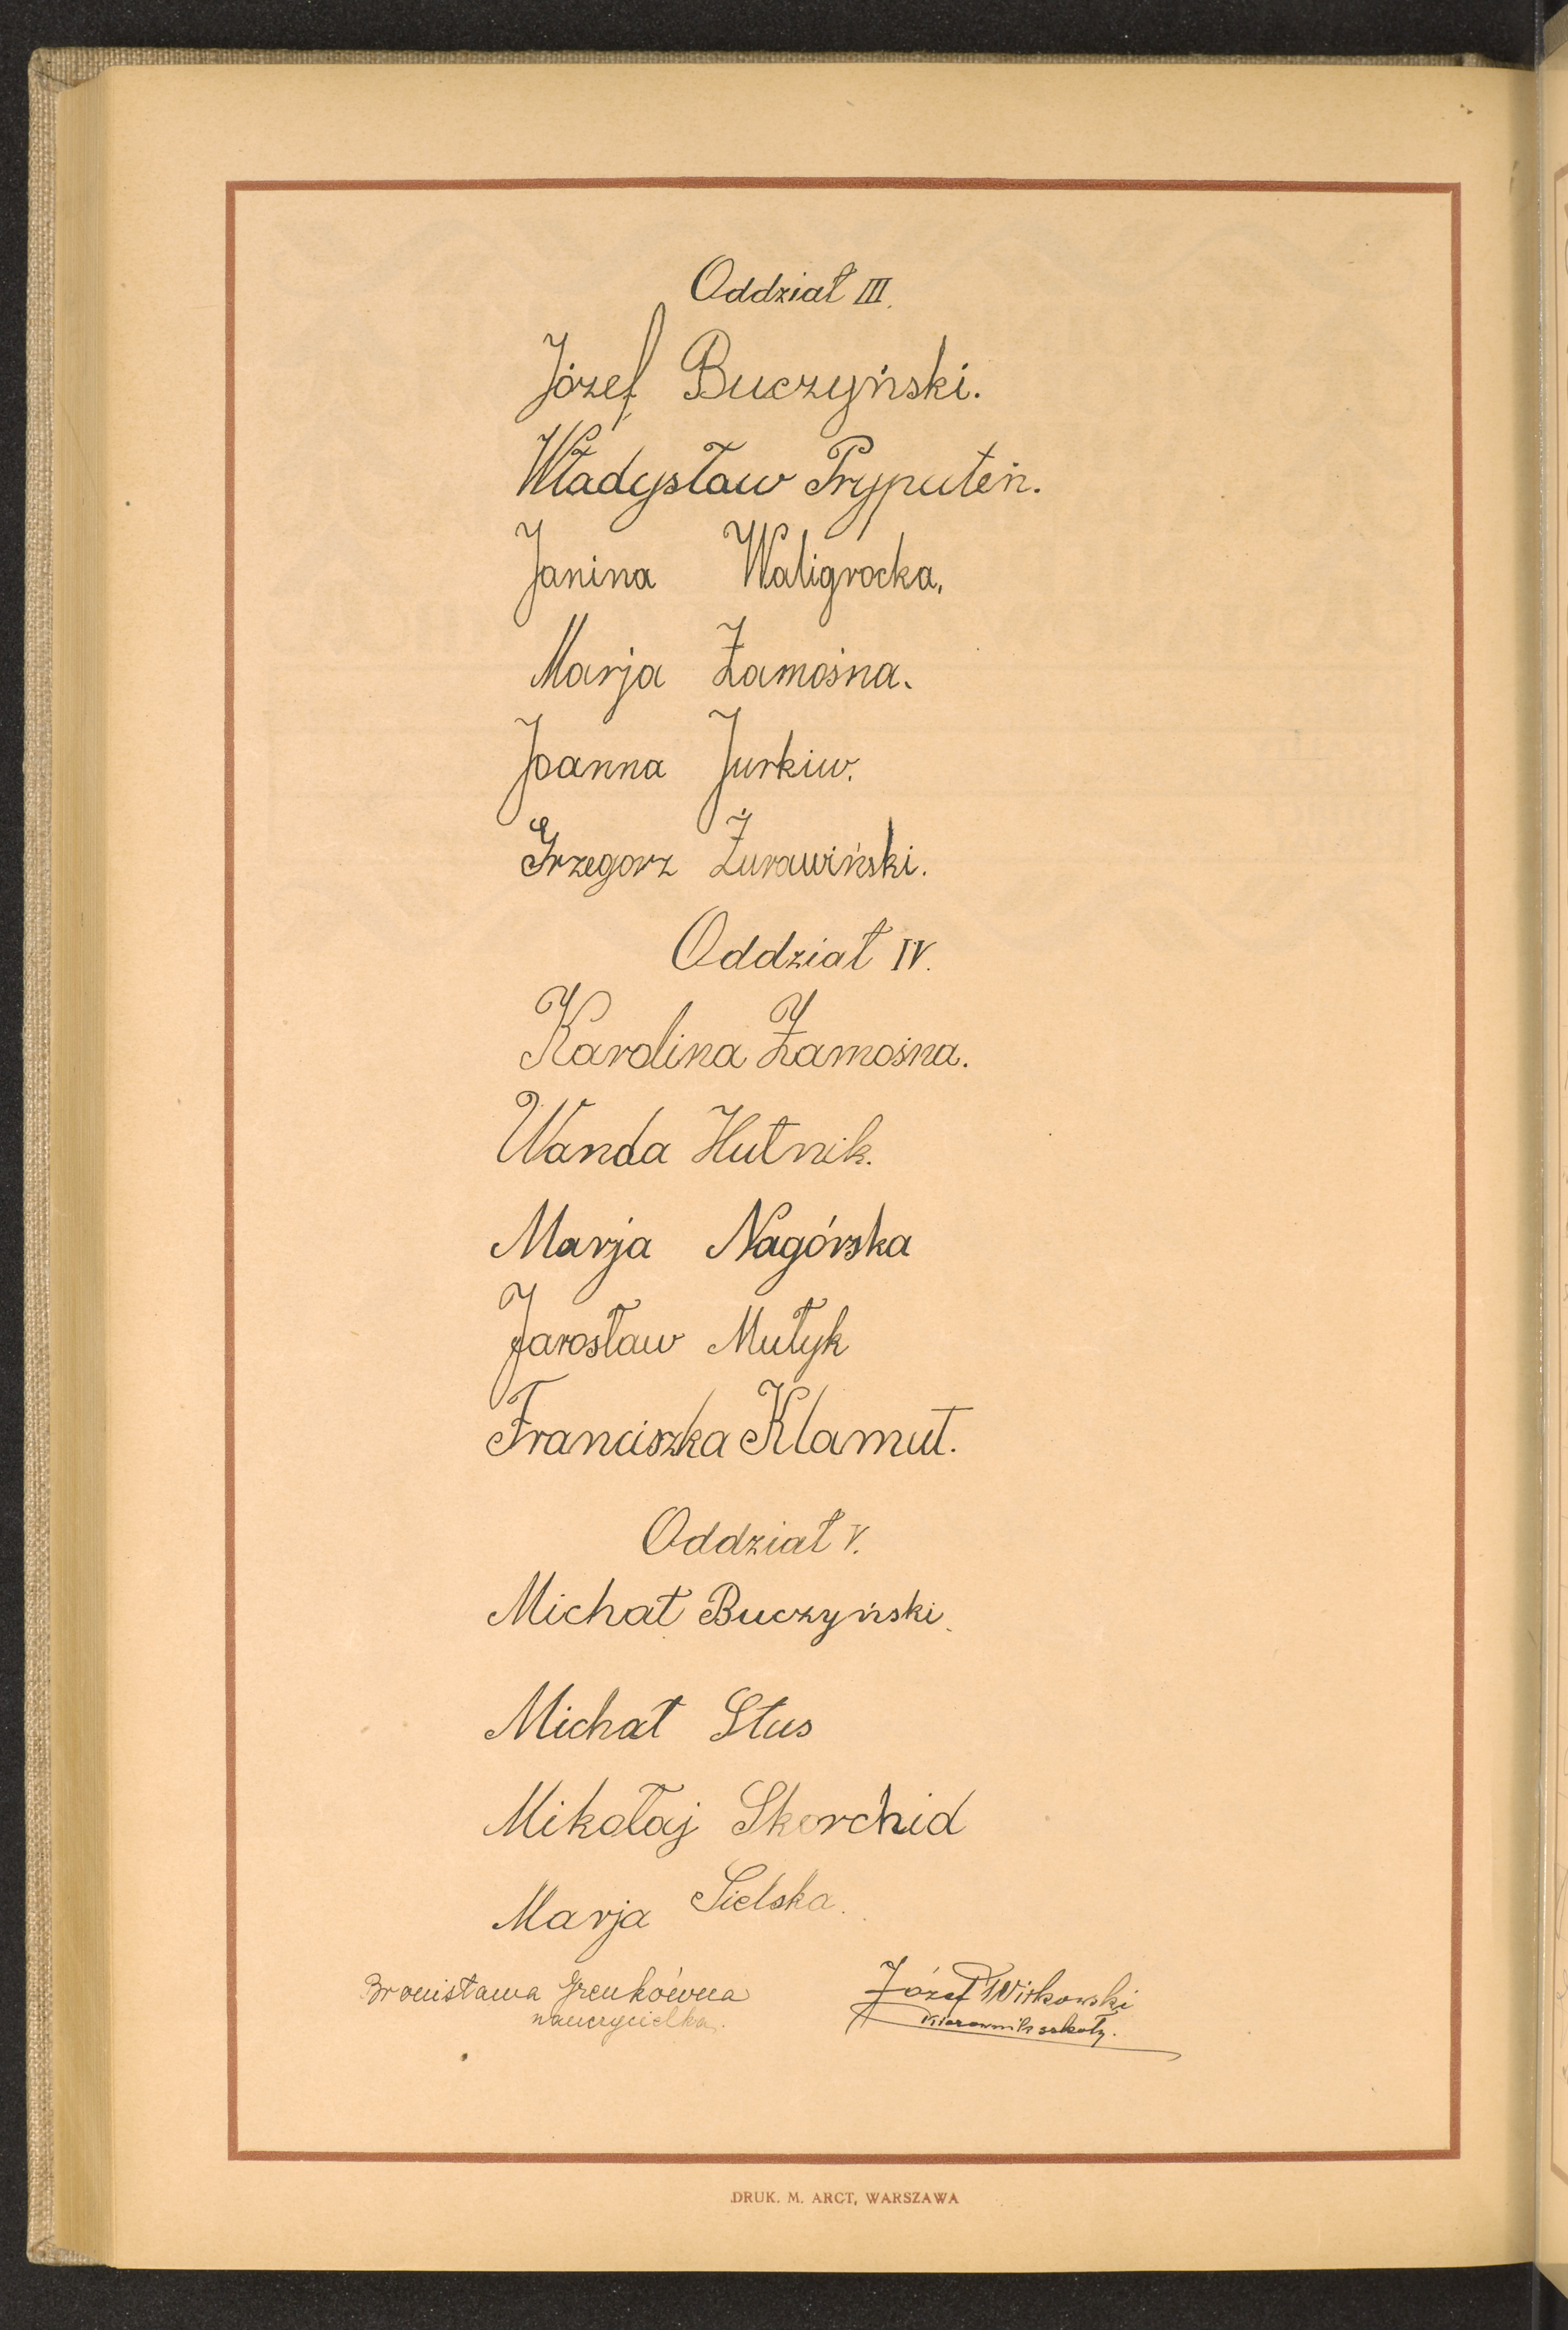 Oddział III.
Józef Buczyński.
Władysław Pryputeń.
Janina Waligrocka,
Marja Zamośna.
Joanna Jurkiw.
Grzegorz Żurawiński.
Oddział IV.
Karolina Zamośna.
Wanda Hutnik.
Marja Nagórska
Jarosław Mułyk
Franciszka Klamut.
Oddział V.
Michał Buczyński.
Michał Stus
Mikołaj Skorchid
Marja Sielska.
Bronisława Grenkówna Józef Witkowski
nauczycielka. Kierownik szkoły.
DRUK. M. ARCT, WARSZAWA